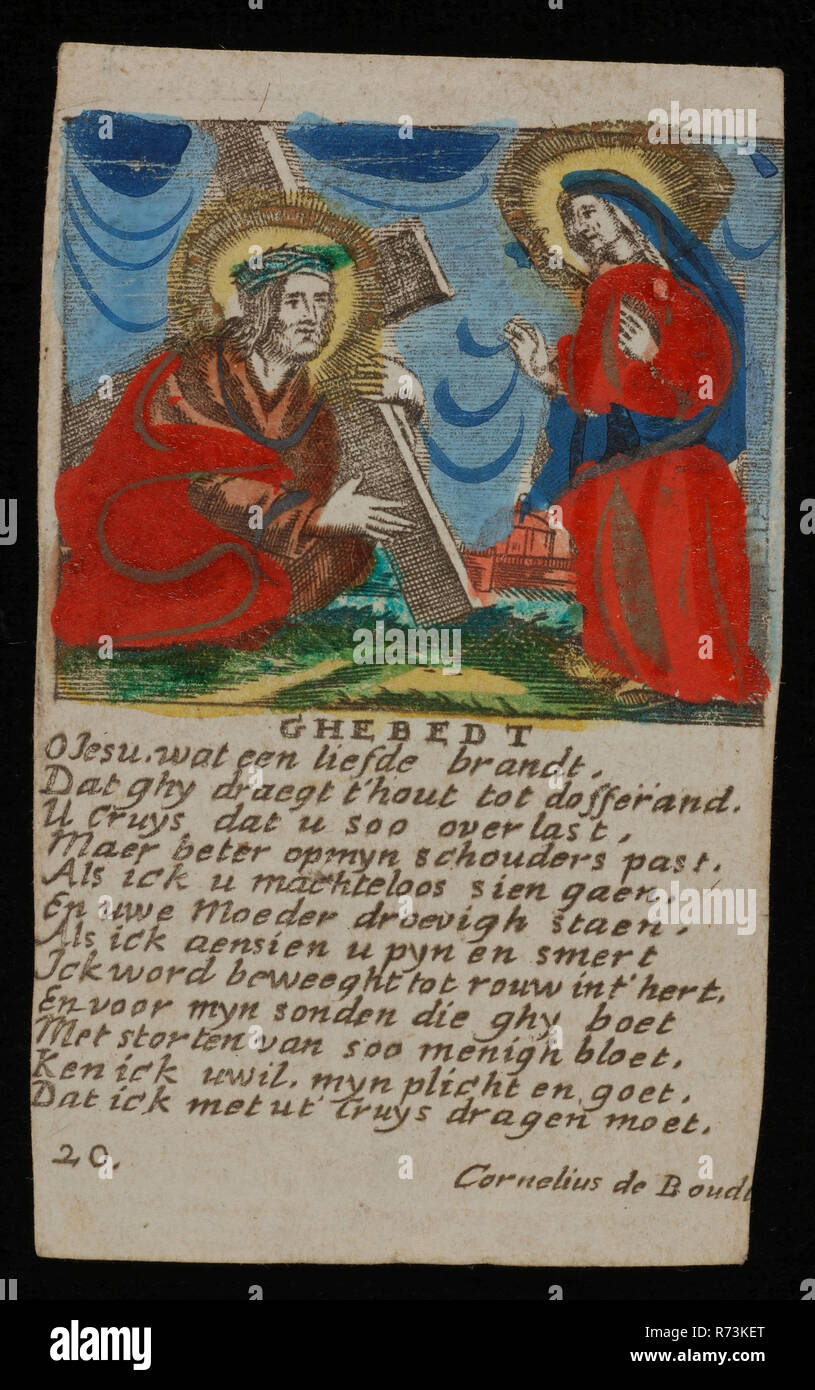 GHEBEDT
O Jesu. wat een liefde brandt,
Dat ghy draegt t'hout tot dofferand.
U Cruys dat u soo over last,
Maer beter op myn schouders past.
Als ick u machteloos sien gaen,
En uwe Moeder droevigh staen,
Als ick aensien u pyn en smert
Ick word beweeght tot rouw int' hert.
En voor myn sonden die ghy boet
Met storten van soo menigh bloet,
Ken ick uwil. myn plicht en goet,
Dat ick met ut' Cruys dragen moet.
20.
Cornelius de Boudt
alamy
Image ID: R73KET
www.alamy.com